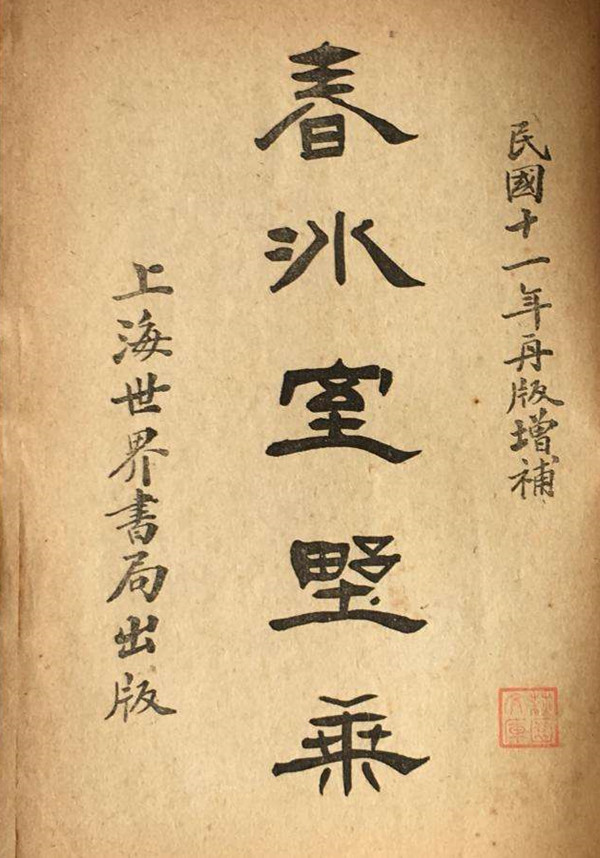 民國十一年再版增補
春冰室墅乘
上海世界書局出版